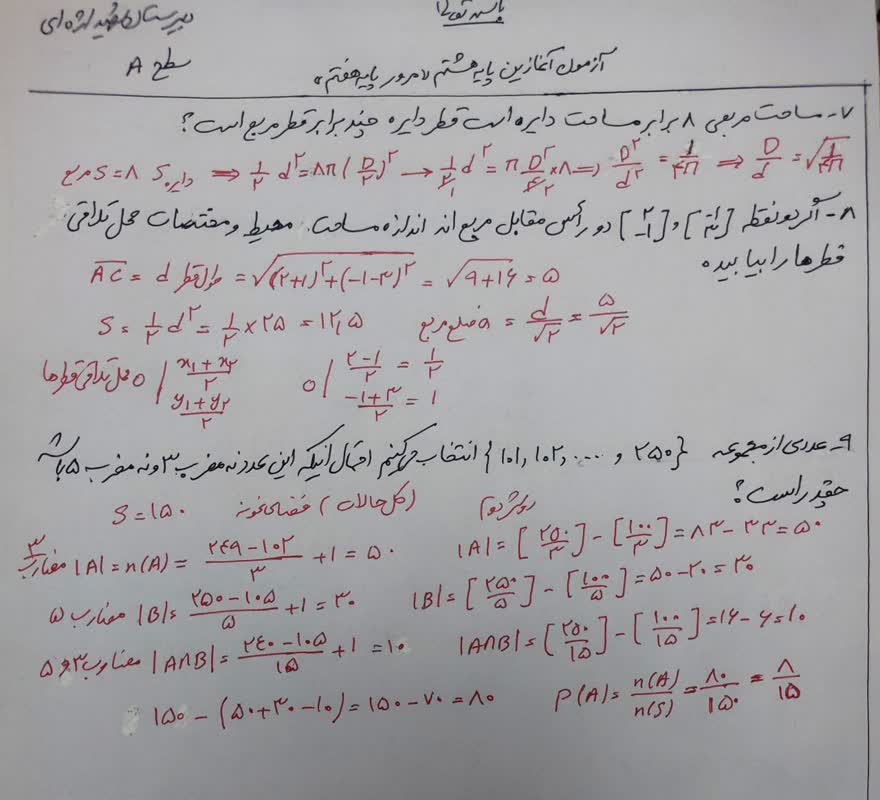 دبیرستان شهید اژه‌ای
سطح A
آزمون آغازین پایه هشتم «مرور پایه هفتم»
۷- مساحت مربعی ۸ برابر مساحت دایره است قطر دایره چند برابر قطر مربع است؟
مربع S = ۸ S دایره ⇒ ½ d² = ۸π(D/۲)² → ½ d² = π D²/۴ × ۸ ⇒ D²/d² = ۱/۴π ⇒ D/d = √(۱/۴π)
۸- اگر دو نقطه [-۱ ۳] و [۲ -۱] دو رأس مقابل مربع اند اندازه مساحت، محیط و مختصات محل تلاقی
قطرها را بیابید.
AC = d طول قطر = √((۲+۱)²+(-۱-۳)²) = √(۹+۱۶) = ۵
S = ½ d² = ½ × ۲۵ = ۱۲٫۵ ضلع مربع a = d/√۲ = ۵/√۲
محل تلاقی قطرها O | (x₁+x₂)/۲ O | (۲-۱)/۲ = ۱/۲
(y₁+y₂)/۲ (-۱+۳)/۲ = ۱
۹- عددی از مجموعه {۱۰۱, ۱۰۲, .... و ۲۵۰} انتخاب می‌کنیم احتمال آنکه این عدد نه مضرب ۳ و نه مضرب ۵ باشد
چقدر است؟
S = ۱۵۰ فضای نمونه (کل حالات) روش دوم
مضارب ۳ |A| = n(A) = (۲۴۹-۱۰۲)/۳ + ۱ = ۵۰ |A| = [۲۵۰/۳] - [۱۰۰/۳] = ۸۳ - ۳۳ = ۵۰
مضارب ۵ |B| = (۲۵۰-۱۰۵)/۵ + ۱ = ۳۰ |B| = [۲۵۰/۵] - [۱۰۰/۵] = ۵۰ - ۲۰ = ۳۰
مضارب ۳ و ۵ |A∩B| = (۲۴۰-۱۰۵)/۱۵ + ۱ = ۱۰ |A∩B| = [۲۵۰/۱۵] - [۱۰۰/۱۵] = ۱۶ - ۶ = ۱۰
۱۵۰ - (۵۰+۳۰-۱۰) = ۱۵۰ - ۷۰ = ۸۰ P(A) = n(A)/n(S) = ۸۰/۱۵۰ = ۸/۱۵